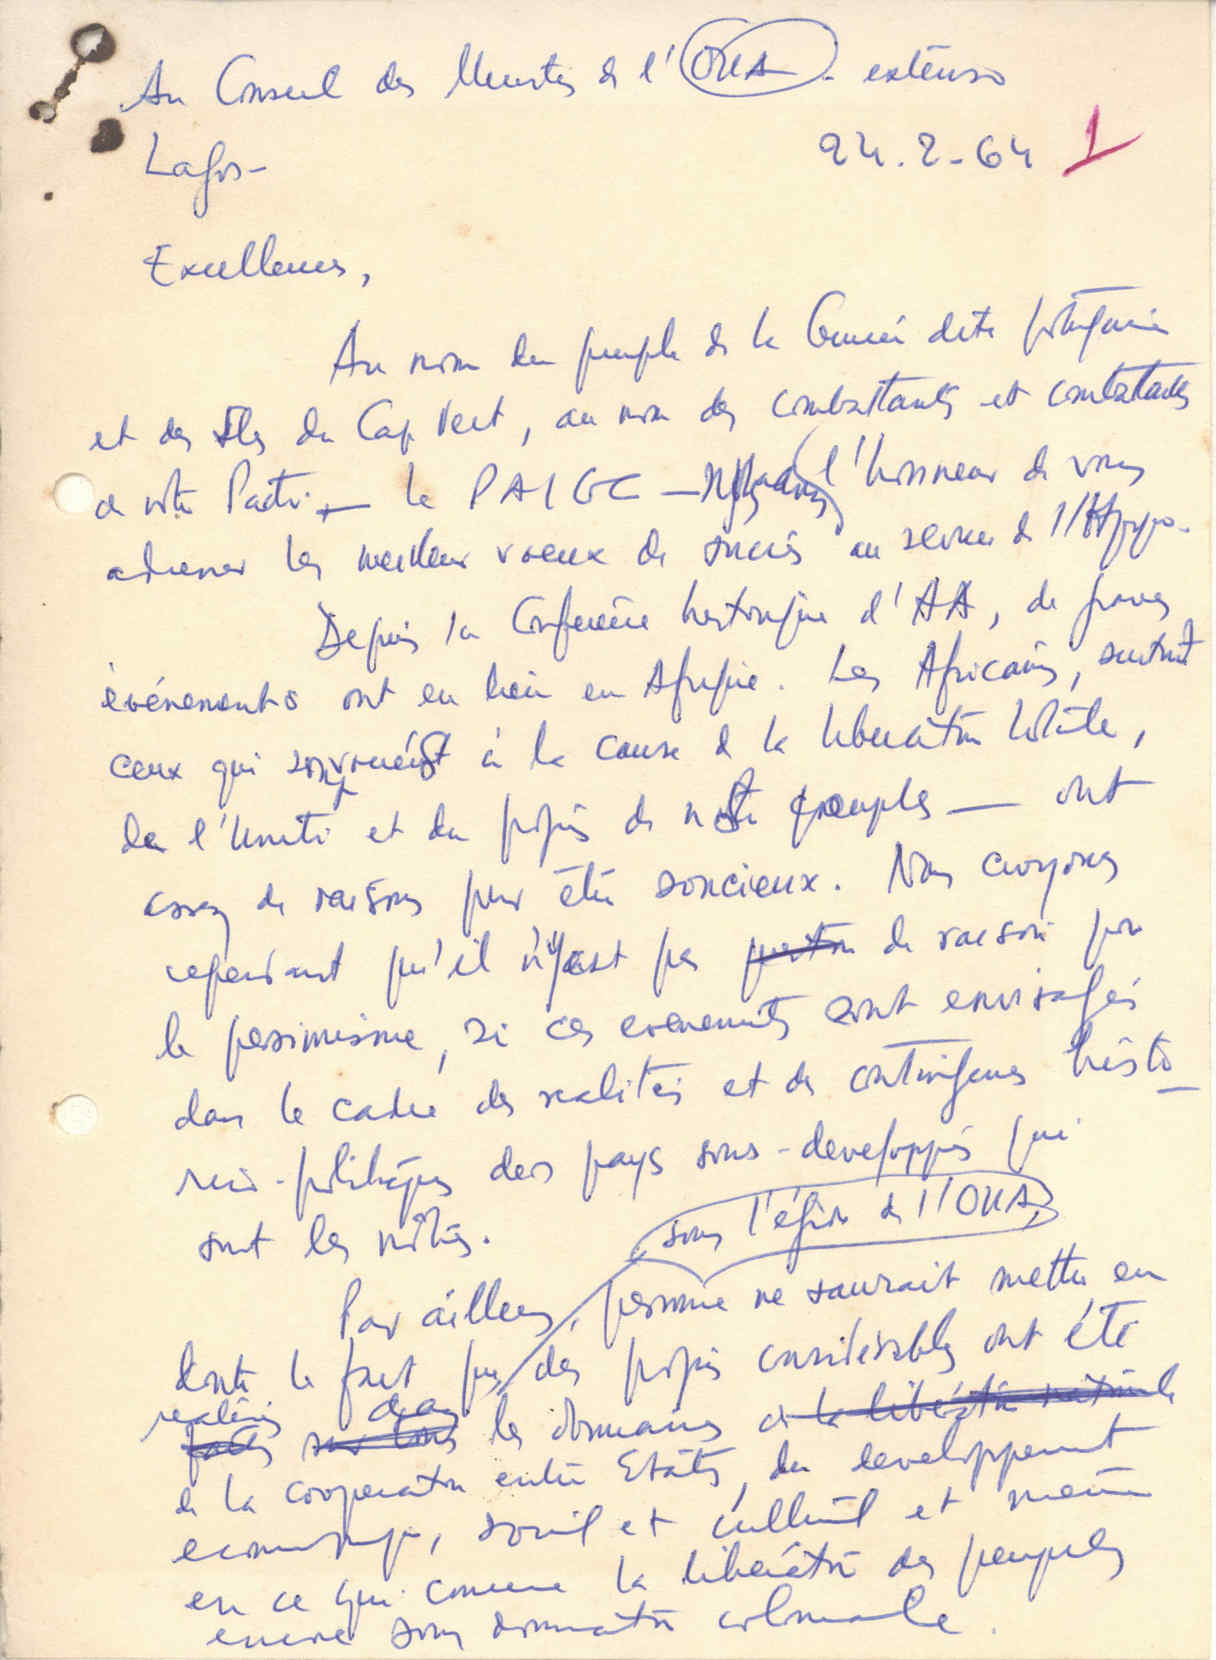 Au Conseil des Ministres de l'OUA - extenso
24.2-64 1
Lagos-
Excellences,
Au nom du peuple de la Guinée dite portugaise
et des Iles du Cap Vert, au nom des combattants et combattantes
de notre Parti - le PAIGC - l'honneur de vous
adresser les meilleurs voeux de succès au service de l'Afrique.
Depuis la Conférence historique d'AA, de graves
événements ont eu lieu en Afrique. Les Africains, surtout
ceux qui sont voués à la cause de la libération totale,
de l'Unité et du progrès de notre peuples — ont
assez de raisons pour être soucieux. Nous croyons
cependant qu'il n'y est pas de raison pour
le pessimisme, si ces evenements sont envisagés
dans le cadre des realités et des contingences histo-
rico-politiques des pays sous-developpés qui
sont les nôtres.
sous l'égide de l'OUA,
Par ailleurs, personne ne saurait mettre en
doute le fait que des progrès considérables ont été
realisés dans les domaines de la libération nationale
de la cooperation entre Etats, du developpement
economique, social et culturel et même
en ce qui concerne la libération des peuples
encore sous domination coloniale.